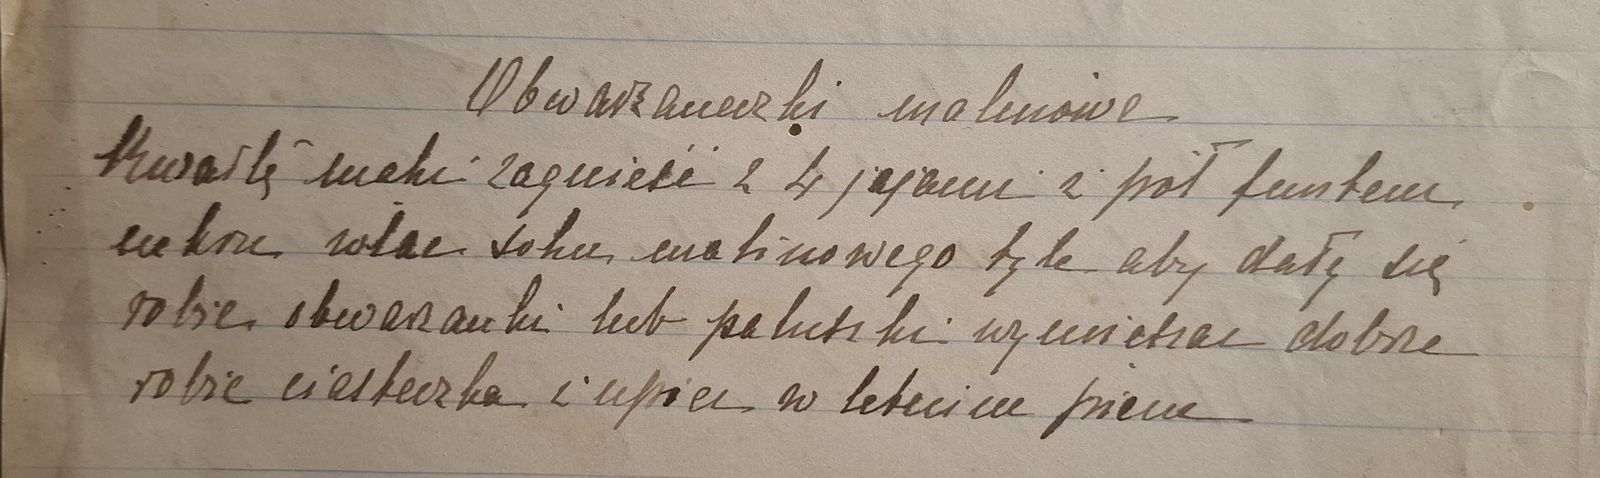 Obwarzaneczki malinowe
Kwartę mąki zagnieść z 4 jajami i pół funtem
cukru wlac soku malinowego tyle aby dały się
robic obwarzanki lub paluszki wymieszac dobrze
robic ciasteczka i upiec w letnim piecu